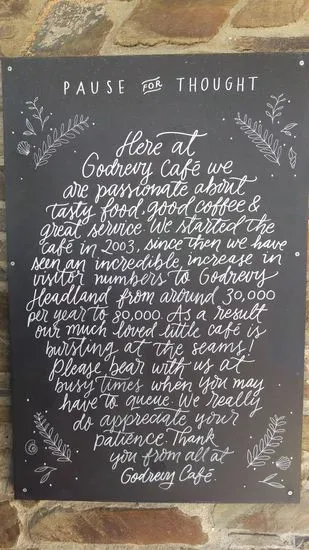 PAUSE FOR THOUGHT
Here at
Godrevy Café we
are passionate about
tasty food, good coffee &
great service. We started the
café in 2003, since then we have
seen an incredible increase in
visitor numbers to Godrevy
Headland from around 30,000
per year to 80,000. As a result
our much loved little café is
bursting at the seams!
Please bear with us at
busy times when you may
have to queue. We really
do appreciate your
patience. Thank
you from all at
Godrevy Café.